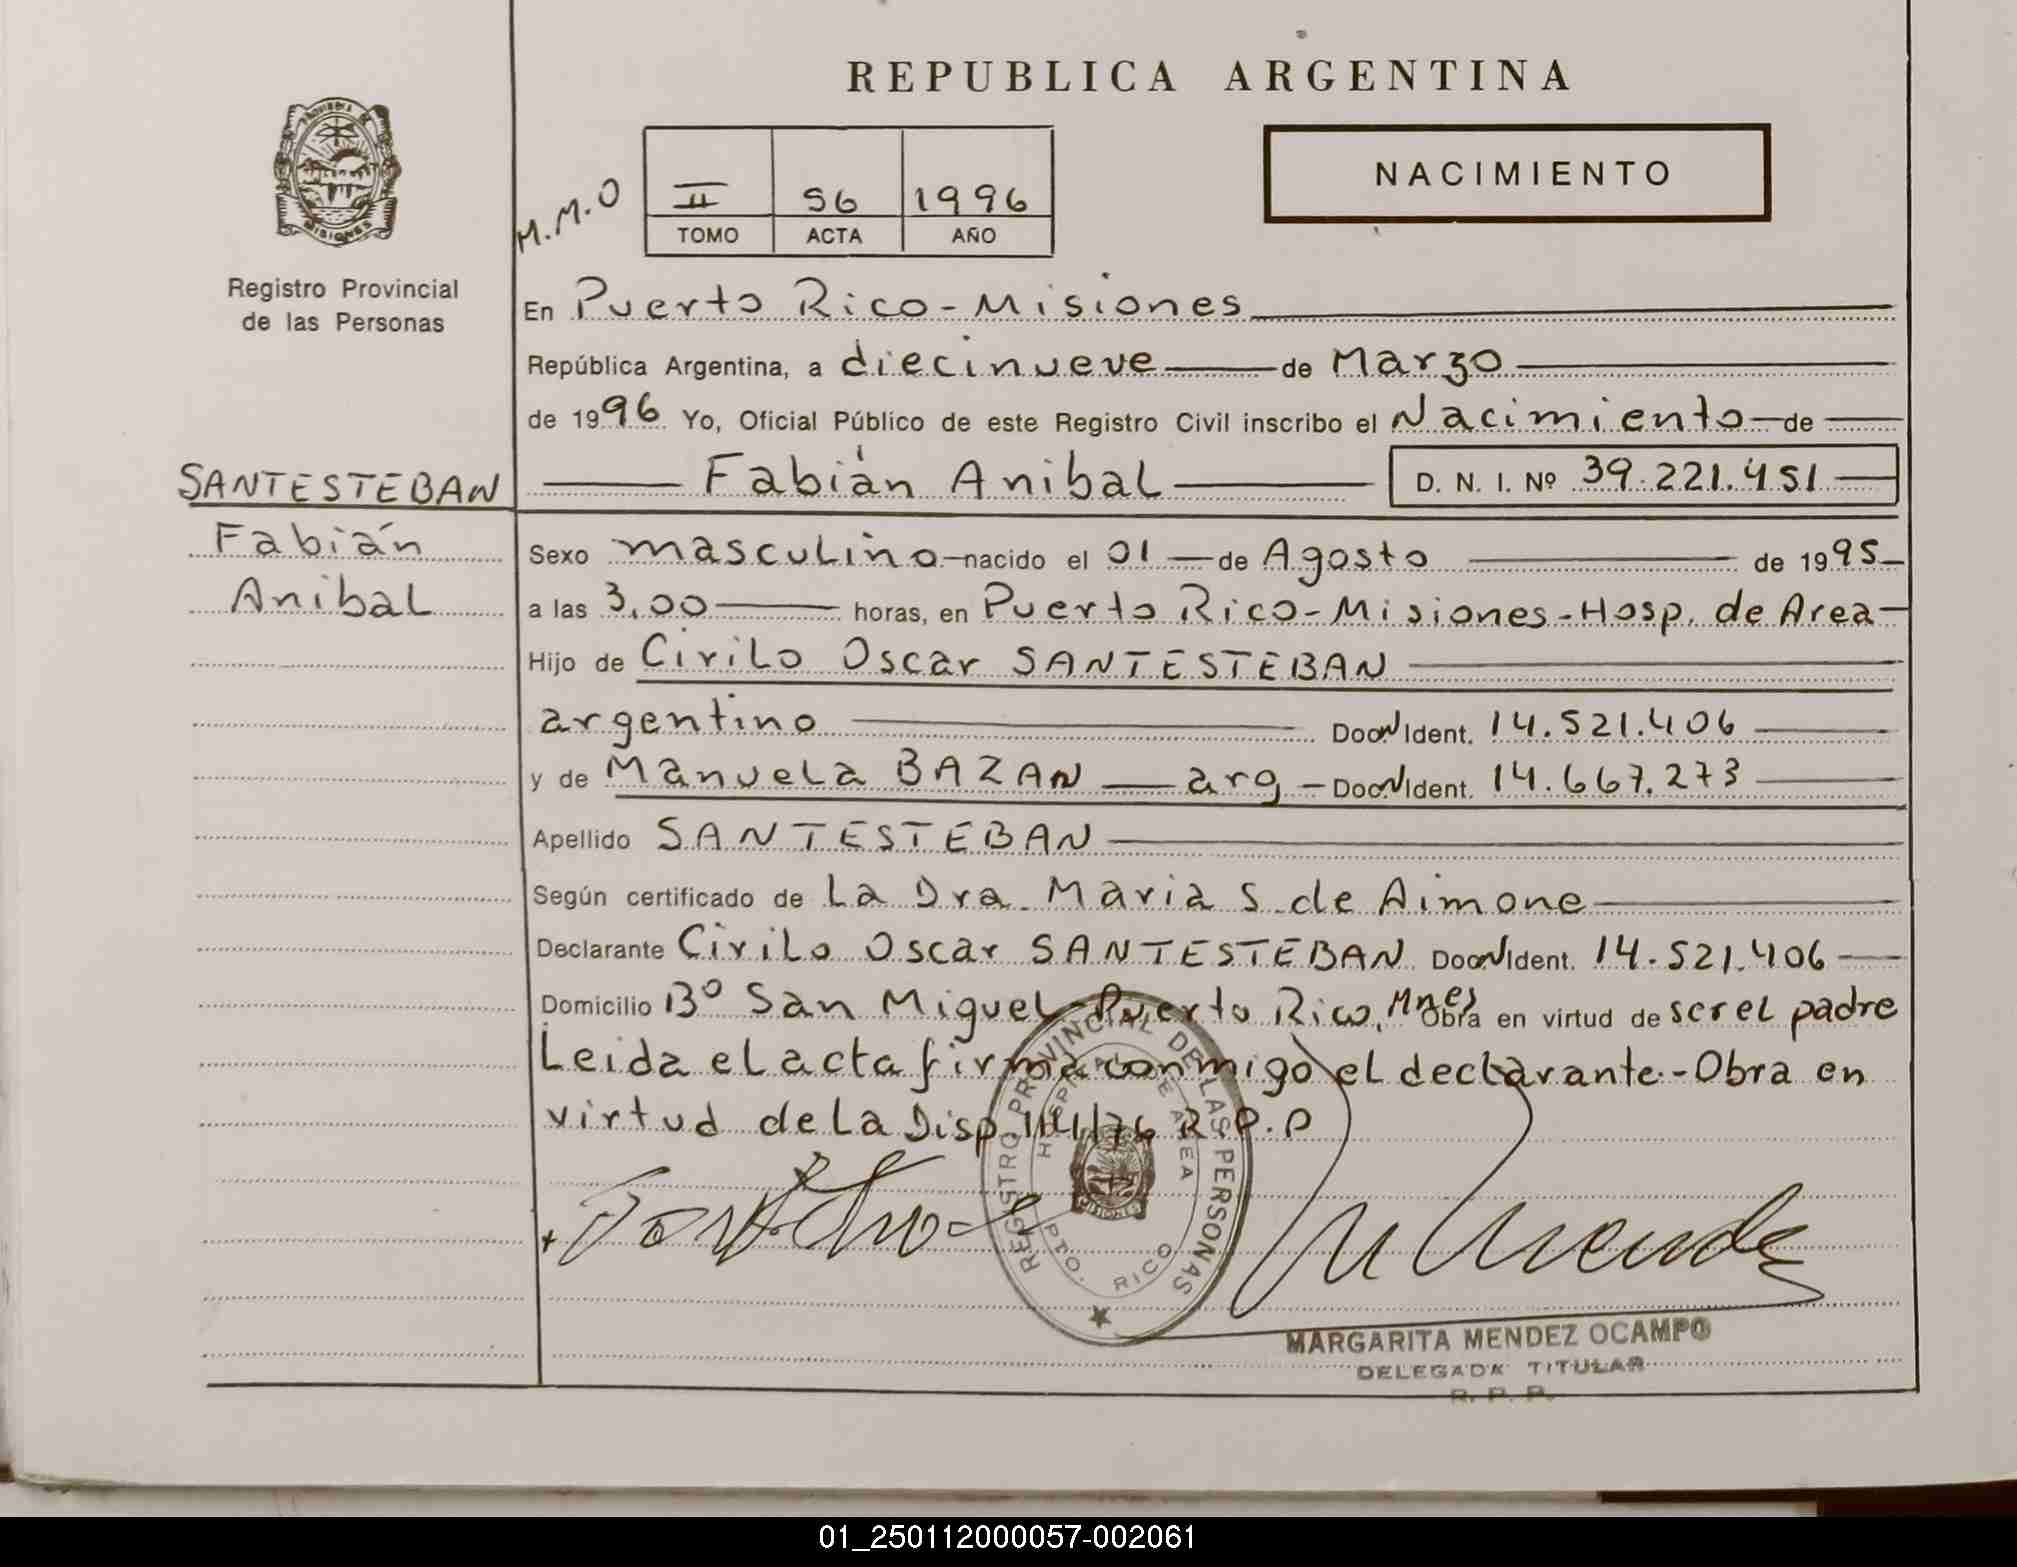 REPUBLICA ARGENTINA
PROVINCIA DE MISIONES
Registro Provincial
de las Personas
M.M.O
II 56 1996
TOMO ACTA AÑO
NACIMIENTO
En Puerto Rico - Misiones
República Argentina, a diecinueve de Marzo
de 1996 Yo, Oficial Público de este Registro Civil inscribo el Nacimiento de
Fabián Anibal D. N. I. Nº 39.221.451
SANTESTEBAN
Fabián
Anibal
Sexo masculino nacido el 01 de Agosto de 1995
a las 3,00 horas, en Puerto Rico - Misiones - Hosp. de Area
Hijo de Cirilo Oscar SANTESTEBAN
argentino Doc. N Ident. 14.521.406
y de Manuela BAZAN arg - Doc. N Ident. 14.667.273
Apellido SANTESTEBAN
Según certificado de La Dra. Maria S. de Aimone
Declarante Cirilo Oscar SANTESTEBAN Doc. N Ident. 14.521.406
Domicilio Bº San Miguel - Puerto Rico, Mnes Obra en virtud de ser el padre
Leida el acta firma conmigo el declarante.- Obra en
virtud de La Disp R.P.P
REGISTRO PROVINCIAL DE LAS PERSONAS
HOSPITAL DE AREA
PTO. RICO
MISIONES
MARGARITA MENDEZ OCAMPO
DELEGADA TITULAR
R. P. P.
01_250112000057-002061